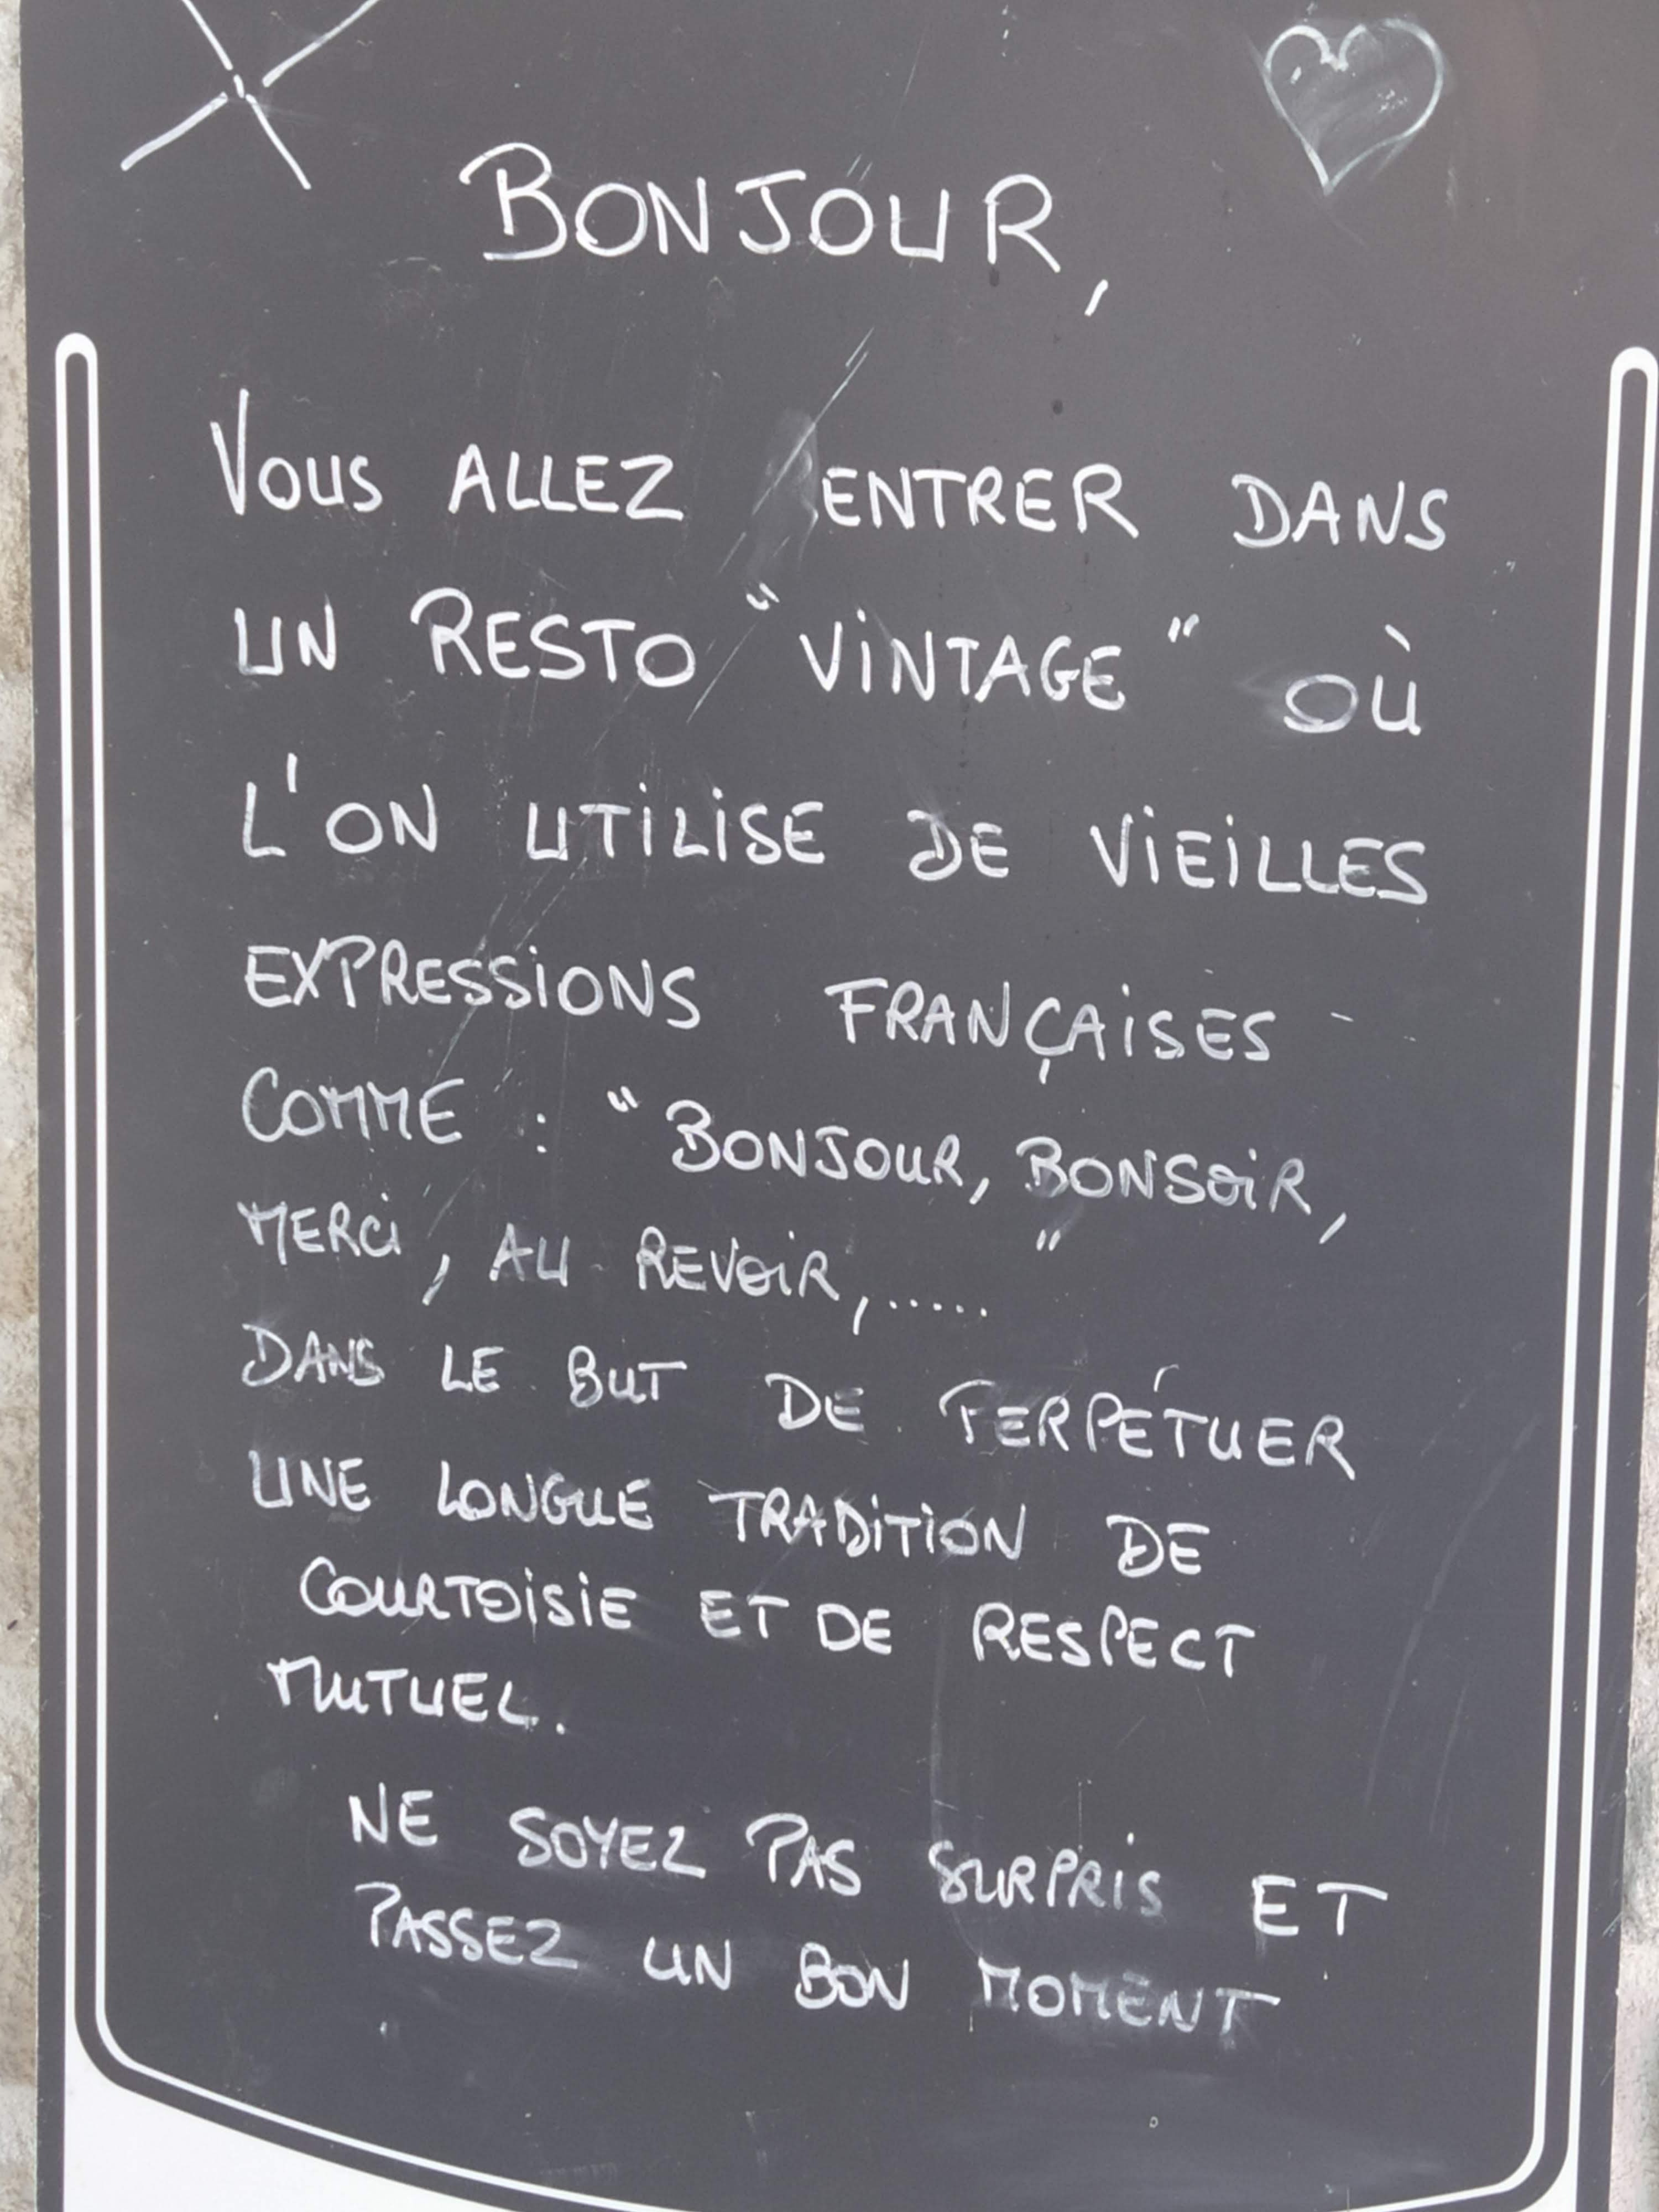 BONJOUR,
VOUS ALLEZ ENTRER DANS
UN RESTO "VINTAGE" OÙ
L'ON UTILISE DE VIEILLES
EXPRESSIONS FRANÇAISES
COMME : "BONJOUR, BONSOIR,
MERCI, AU REVOIR,....."
DANS LE BUT DE PERPÉTUER
UNE LONGUE TRADITION DE
COURTOISIE ET DE RESPECT
MUTUEL.
NE SOYEZ PAS SURPRIS ET
PASSEZ UN BON MOMENT